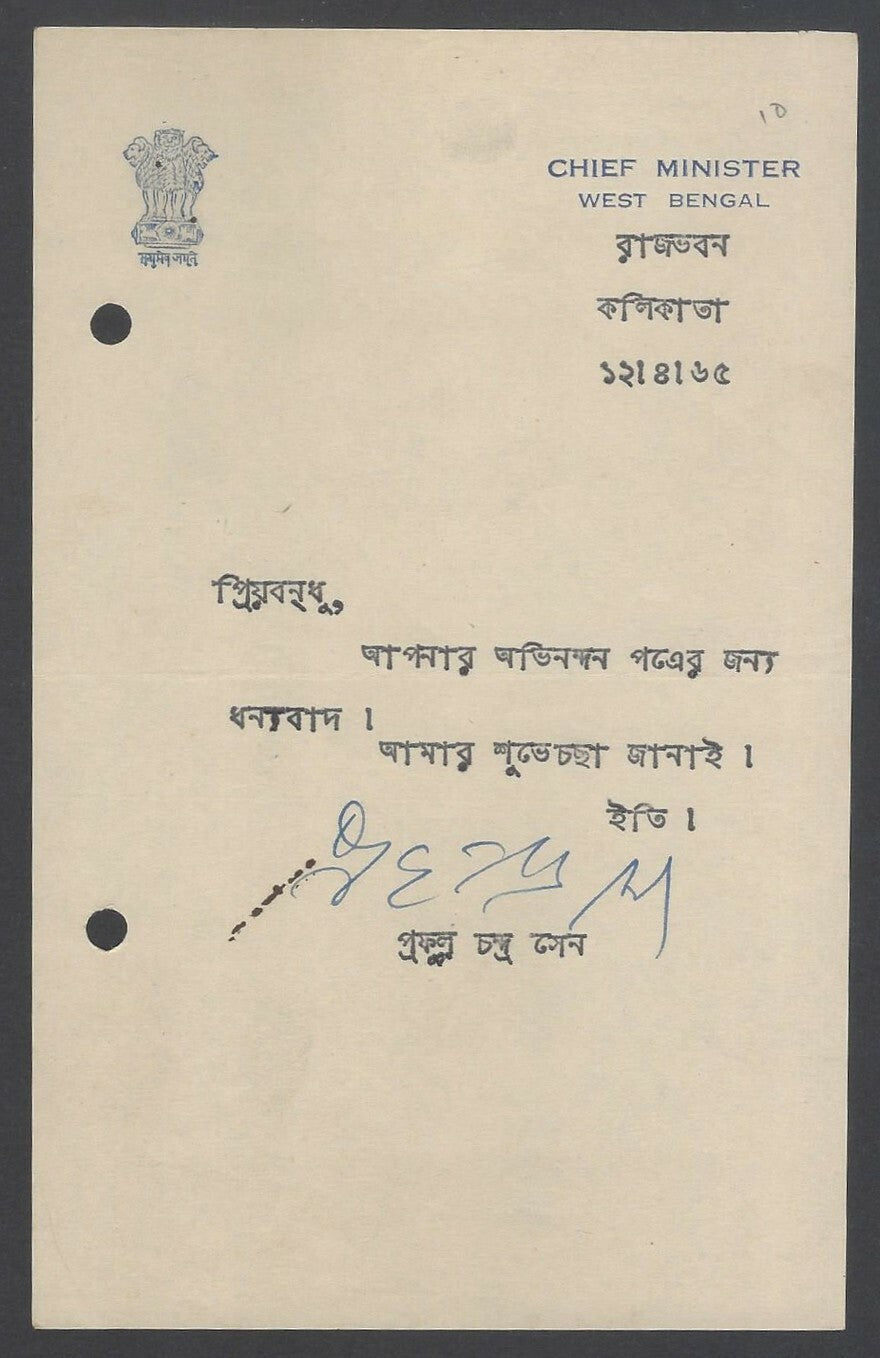 ১০
CHIEF MINISTER
WEST BENGAL
सत्यमेव जयते
রাজভবন
কলিকাতা
১২।৪।৬৫
প্রিয়বন্ধু,
আপনার অভিনন্দন পত্রের জন্য
ধন্যবাদ ।
আমার শুভেচ্ছা জানাই ।
ইতি ।
প্রফুল্ল চন্দ্র সেন